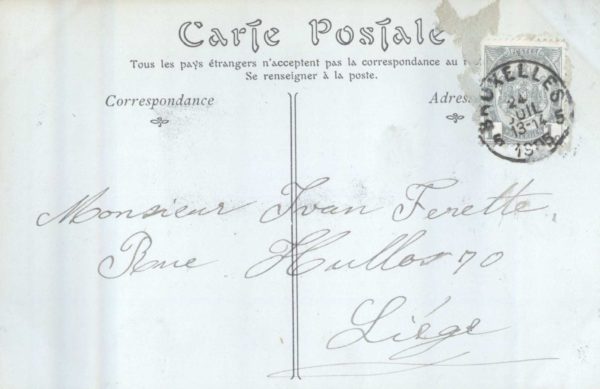 Carte Postale
Tous les pays étrangers n'acceptent pas la correspondance au
Se renseigner à la poste.
Correspondance
BRUXELLES 5
JUIL
13-14
Monsieur Ivan Ferette.
Rue Hullos 70
Liège